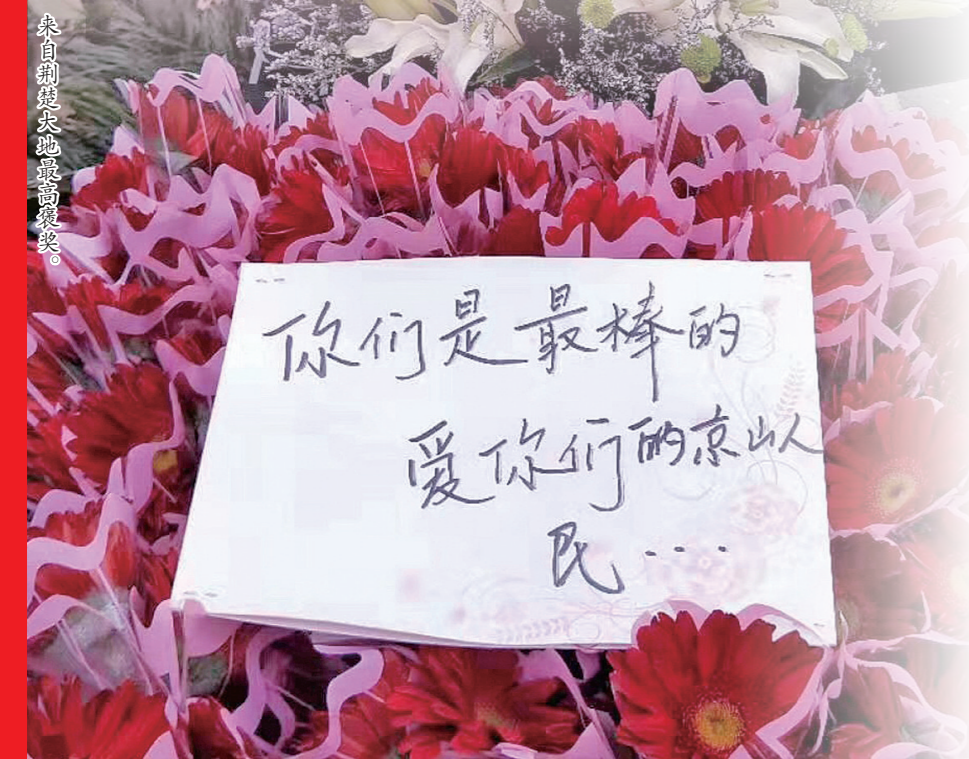 来自荆楚大地最高褒奖。
你们是最棒的
爱你们的京山人
民...